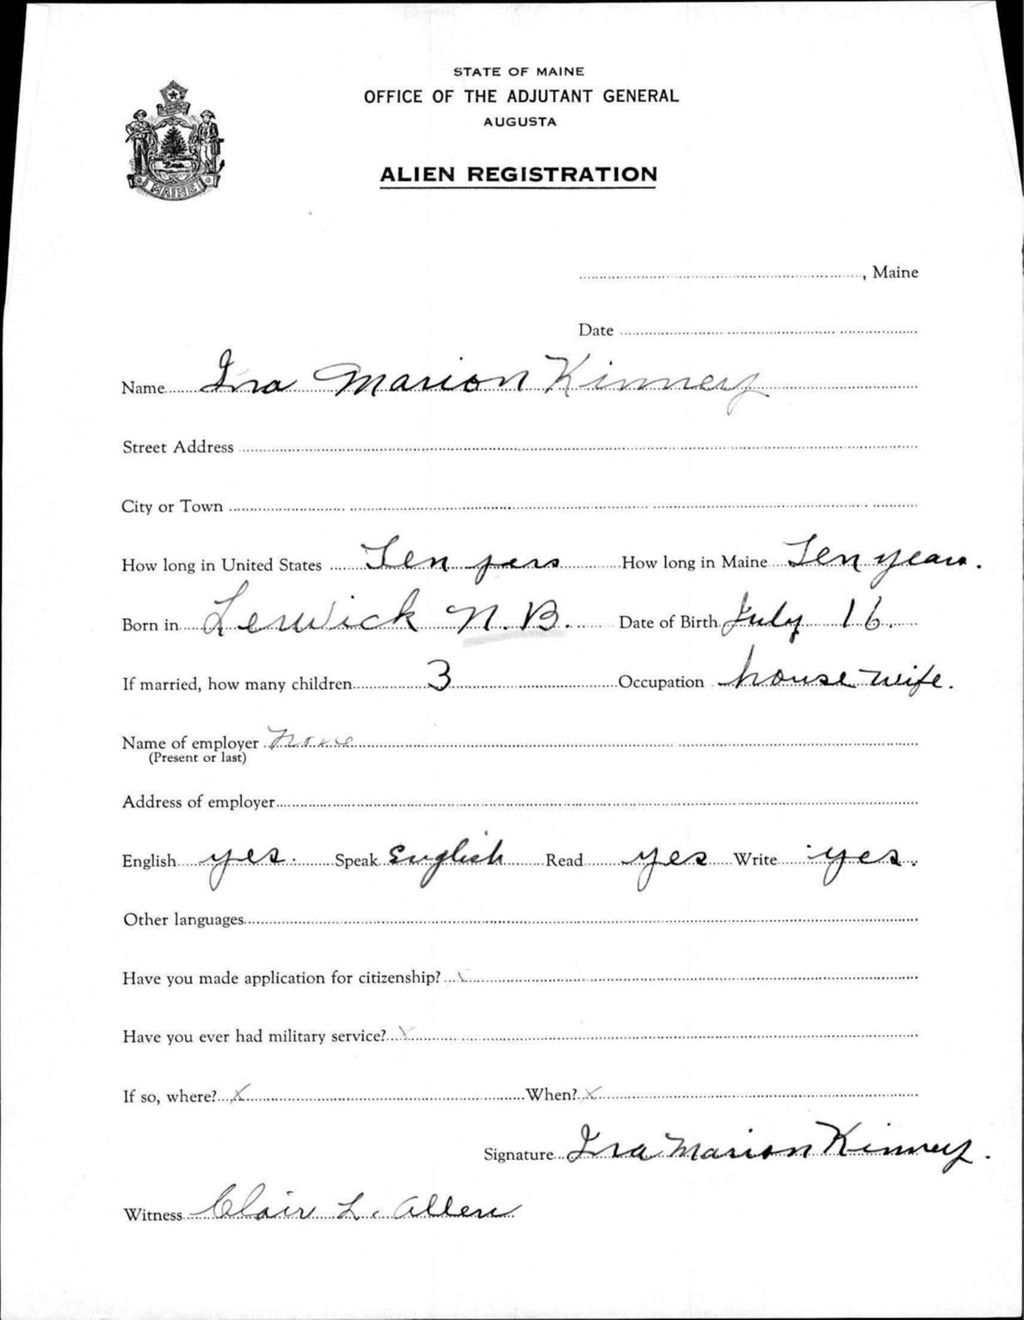 STATE OF MAINE
OFFICE OF THE ADJUTANT GENERAL
AUGUSTA
ALIEN REGISTRATION
MAINE
, Maine
Date
Name Ira Marion Kinney
Street Address
City or Town
How long in United States Ten yers How long in Maine Ten years.
Born in Lerwick N.B. Date of Birth July 16.
If married, how many children 3 Occupation house wife.
Name of employer None
(Present or last)
Address of employer
English yes. Speak English Read yes Write yes.
Other languages
Have you made application for citizenship? x
Have you ever had military service? x
If so, where? x When? x
Signature Ira Marion Kinney.
Witness Clair L. Allen